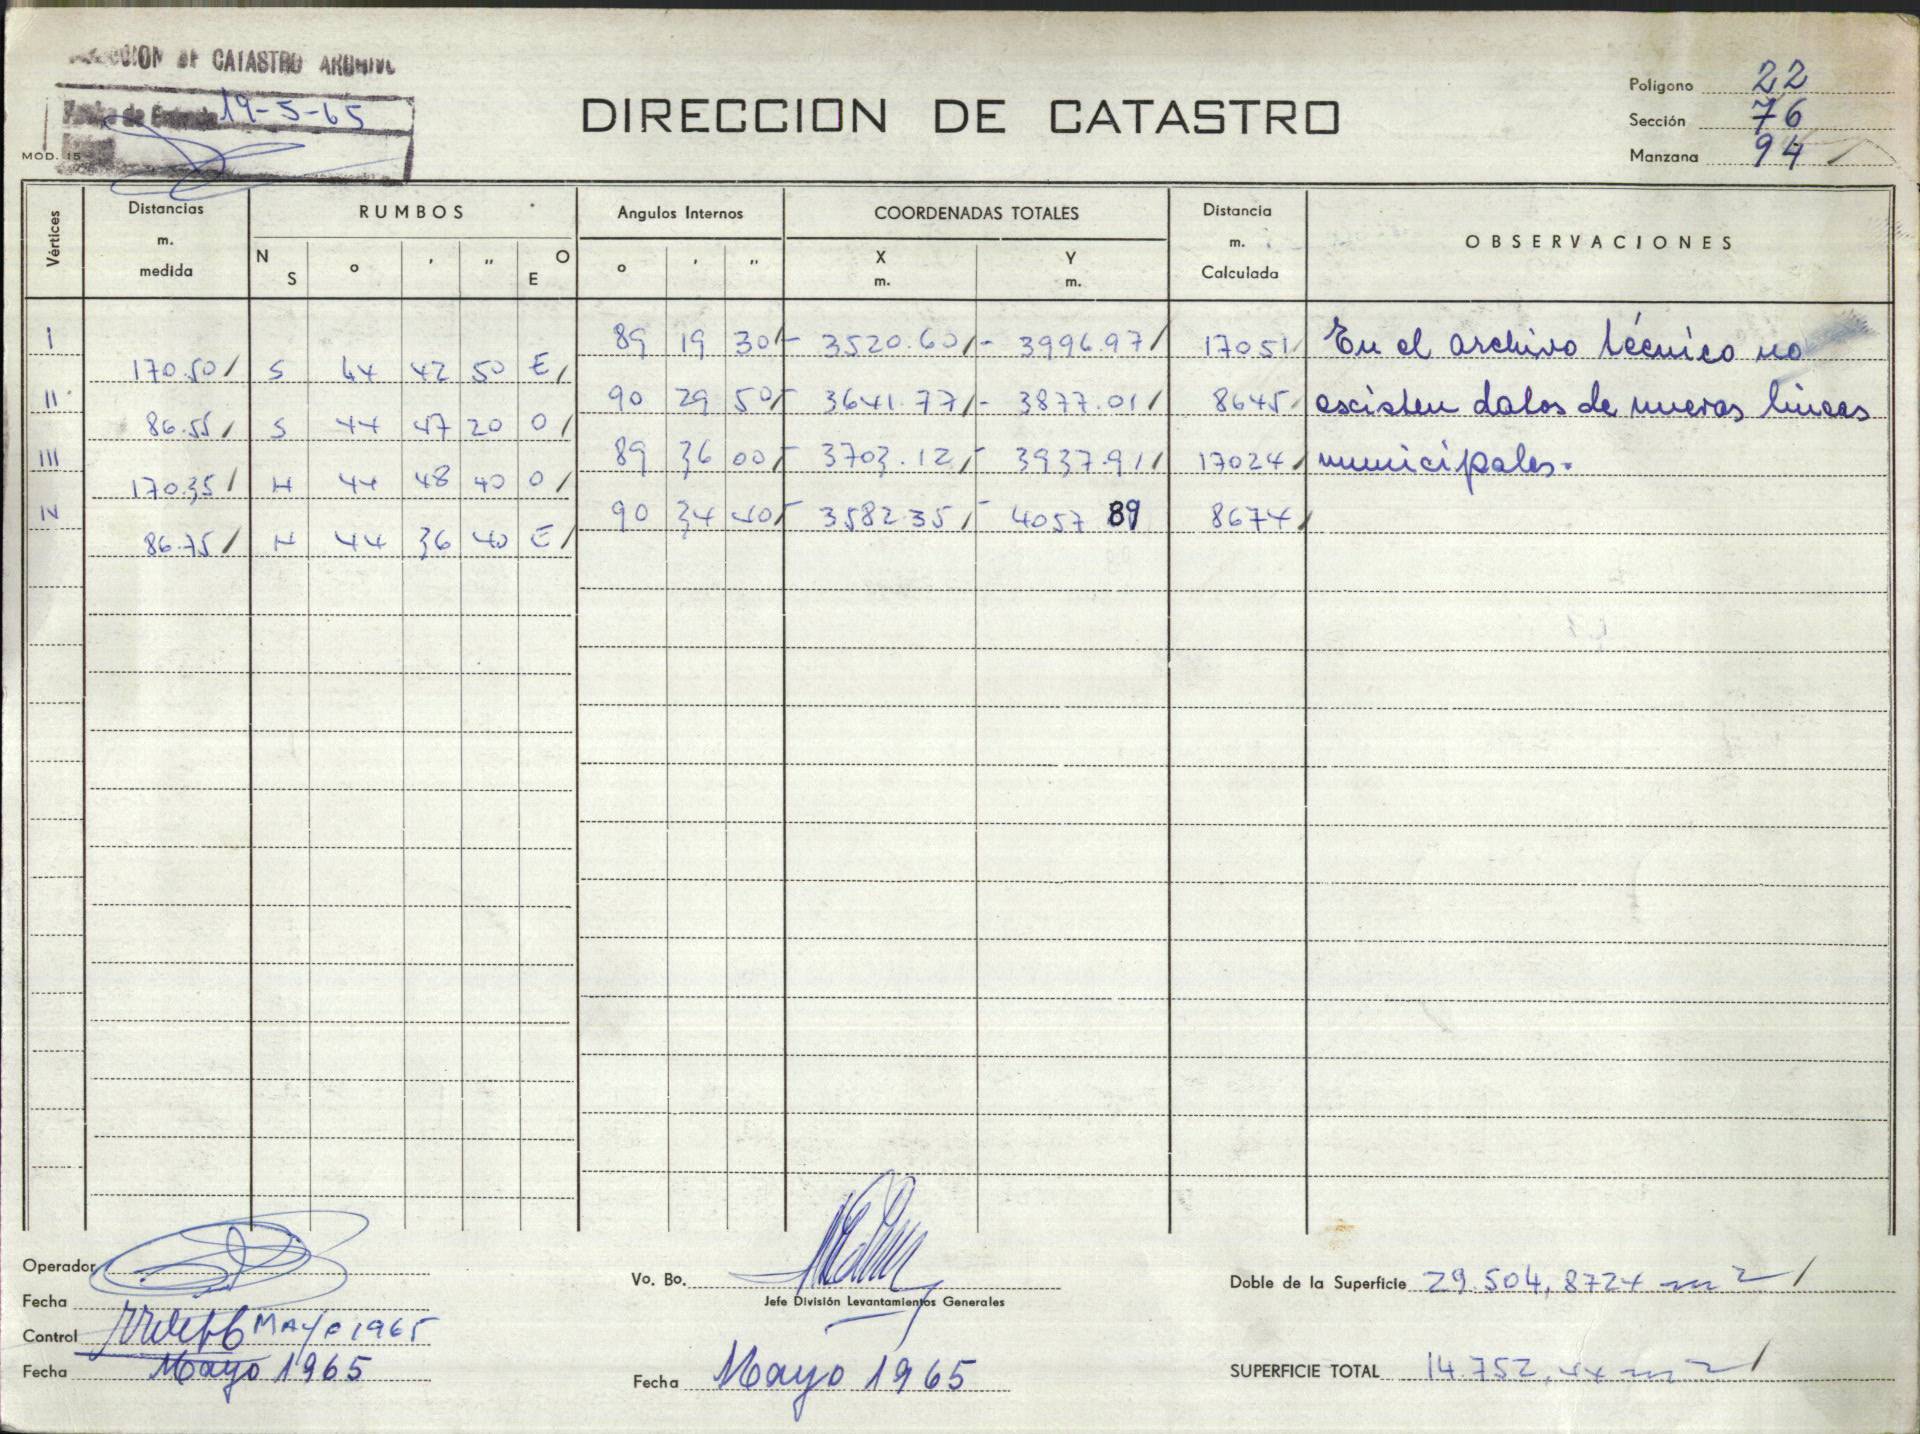 DIRECCION DE CATASTRO ARCHIVO
Fecha de Entrada 19-5-65
MOD. 15
DIRECCION DE CATASTRO
Polígono 22
Sección 76
Manzana 94
Vértices Distancias m. medida RUMBOS N S ° ' " O E Angulos Internos ° ' " COORDENADAS TOTALES X m. Y m. Distancia m. Calculada OBSERVACIONES
I 89 19 30 - 3520.60 - 3996.97 17051 En el archivo técnico no
170.50 S 44 42 50 E
II 90 29 50 - 3641.77 - 3877.01 8645 escisten datos de nuevas lineas
86.55 S 44 47 20 O
III 89 36 00 - 3703.12 - 3937.91 17024 municipales.
170.35 N 44 48 40 O
IV 90 34 40 - 3582.35 - 4057 89 8674
86.75 N 44 36 40 E
Operador
Fecha
Control MAYO 1965
Fecha Mayo 1965
Vo. Bo.
Jefe División Levantamientos Generales
Fecha Mayo 1965
Doble de la Superficie 29.504,8724 m2
SUPERFICIE TOTAL 14.752,44 m2